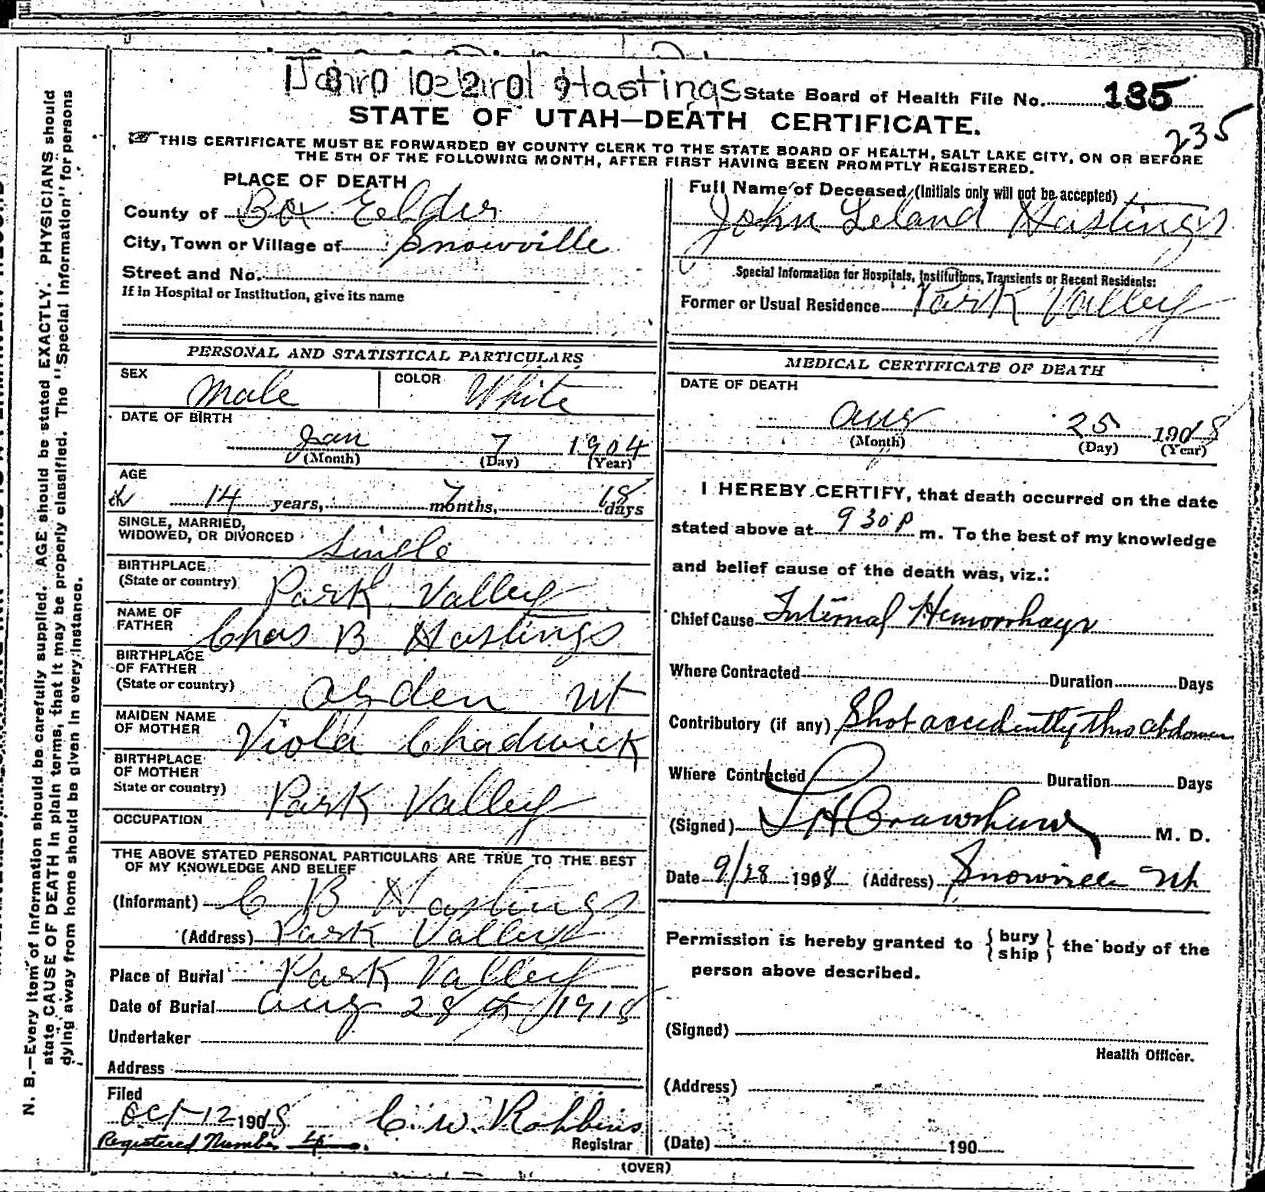 State Board of Health File No. 135
235
STATE OF UTAH—DEATH CERTIFICATE.
THIS CERTIFICATE MUST BE FORWARDED BY COUNTY CLERK TO THE STATE BOARD OF HEALTH, SALT LAKE CITY, ON OR BEFORE
THE 5TH OF THE FOLLOWING MONTH, AFTER FIRST HAVING BEEN PROMPTLY REGISTERED.
PLACE OF DEATH
County of Box Elder
City, Town or Village of Snowville
Street and No.
If in Hospital or Institution, give its name
Full Name of Deceased (Initials only will not be accepted)
John Leland Hastings
Special Information for Hospitals, Institutions, Transients or Recent Residents:
Former or Usual Residence Park Valley
PERSONAL AND STATISTICAL PARTICULARS
SEX Male COLOR White
DATE OF BIRTH
Jan 7 1904
(Month) (Day) (Year)
AGE
14 years, 7 months, 18 days
SINGLE, MARRIED,
WIDOWED, OR DIVORCED Single
BIRTHPLACE
(State or country) Park Valley
NAME OF
FATHER Chas B Hastings
BIRTHPLACE
OF FATHER
(State or country) Ogden Ut
MAIDEN NAME
OF MOTHER Viola Chadwick
BIRTHPLACE
OF MOTHER
State or country) Park Valley
OCCUPATION
THE ABOVE STATED PERSONAL PARTICULARS ARE TRUE TO THE BEST
OF MY KNOWLEDGE AND BELIEF
(Informant) C B Hastings
(Address) Park Valley
Place of Burial Park Valley
Date of Burial Aug 28 1918
Undertaker
Address
Filed
Oct 12 1908 C. W. Robbins
Registered Number 4. Registrar
MEDICAL CERTIFICATE OF DEATH
DATE OF DEATH
Aug 25 1918
(Month) (Day) (Year)
I HEREBY CERTIFY, that death occurred on the date
stated above at 9 30 P m. To the best of my knowledge
and belief cause of the death was, viz.:
Chief Cause Internal Hemorrhage
Where Contracted Duration Days
Contributory (if any) Shot accidently thro abdomen
Where Contracted Duration Days
(Signed) M. D.
Date 9/28 1908 (Address) Snowville Ut
Permission is hereby granted to { bury
ship } the body of the
person above described.
(Signed)
Health Officer.
(Address)
(Date) 190
(OVER)
N. B.—Every item of Information should be carefully supplied. AGE should be stated EXACTLY. PHYSICIANS should
state CAUSE OF DEATH in plain terms, that it may be properly classified. The "Special Information" for persons
dying away from home should be given in every instance.